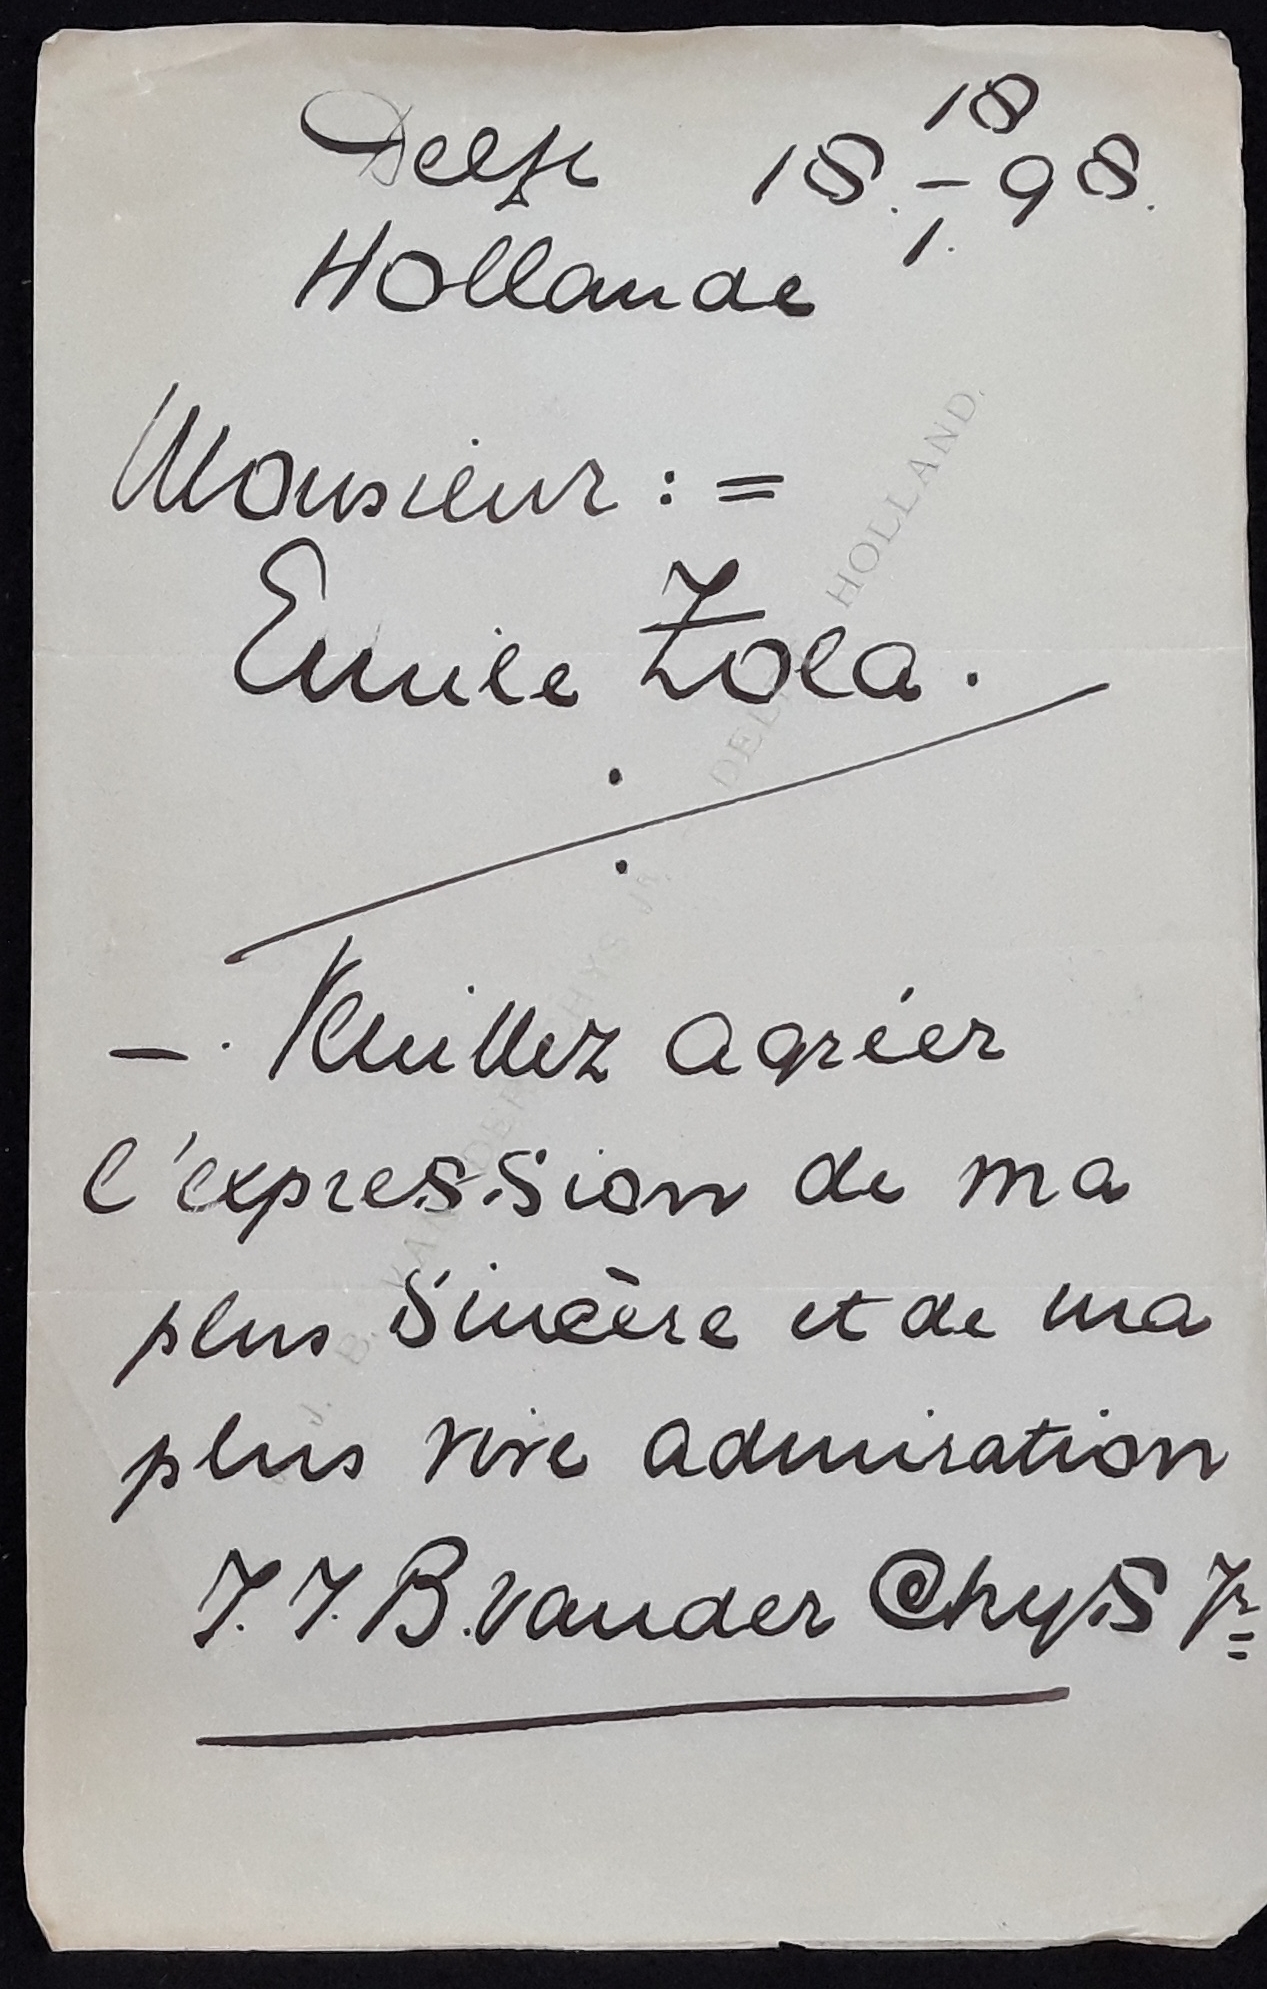 Delft 18. 18/1. 98.
Hollande
Monsieur : =
Emile Zola.
— . Veuillez agréer
l'expression de ma
plus sincère et de ma
plus vive admiration
J. J. B. vander Chys Jr
J. B. VAN DER CHYS Jr. DELFT HOLLAND.